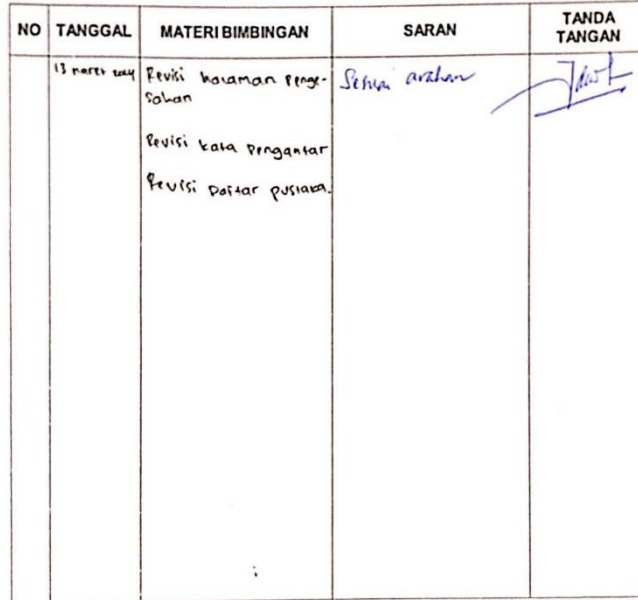 NO TANGGAL MATERI BIMBINGAN SARAN TANDA TANGAN
13 maret 2024 Revisi halaman Penge-
sahan
Sesuai arahan
Revisi kata Pengantar
Revisi Daftar pustaka.